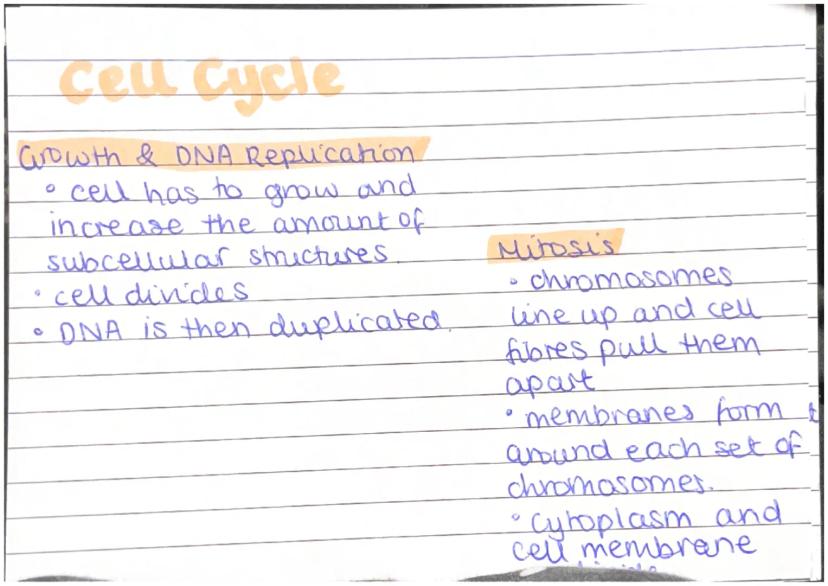 Cell Cycle
Growth & DNA Replication
• cell has to grow and
increase the amount of
subcellular structures.
• cell divides
• DNA is then duplicated.
Mitosis
• chromosomes
line up and cell
fibres pull them
apart
• membranes form
around each set of
chromosomes.
• cytoplasm and
cell membrane